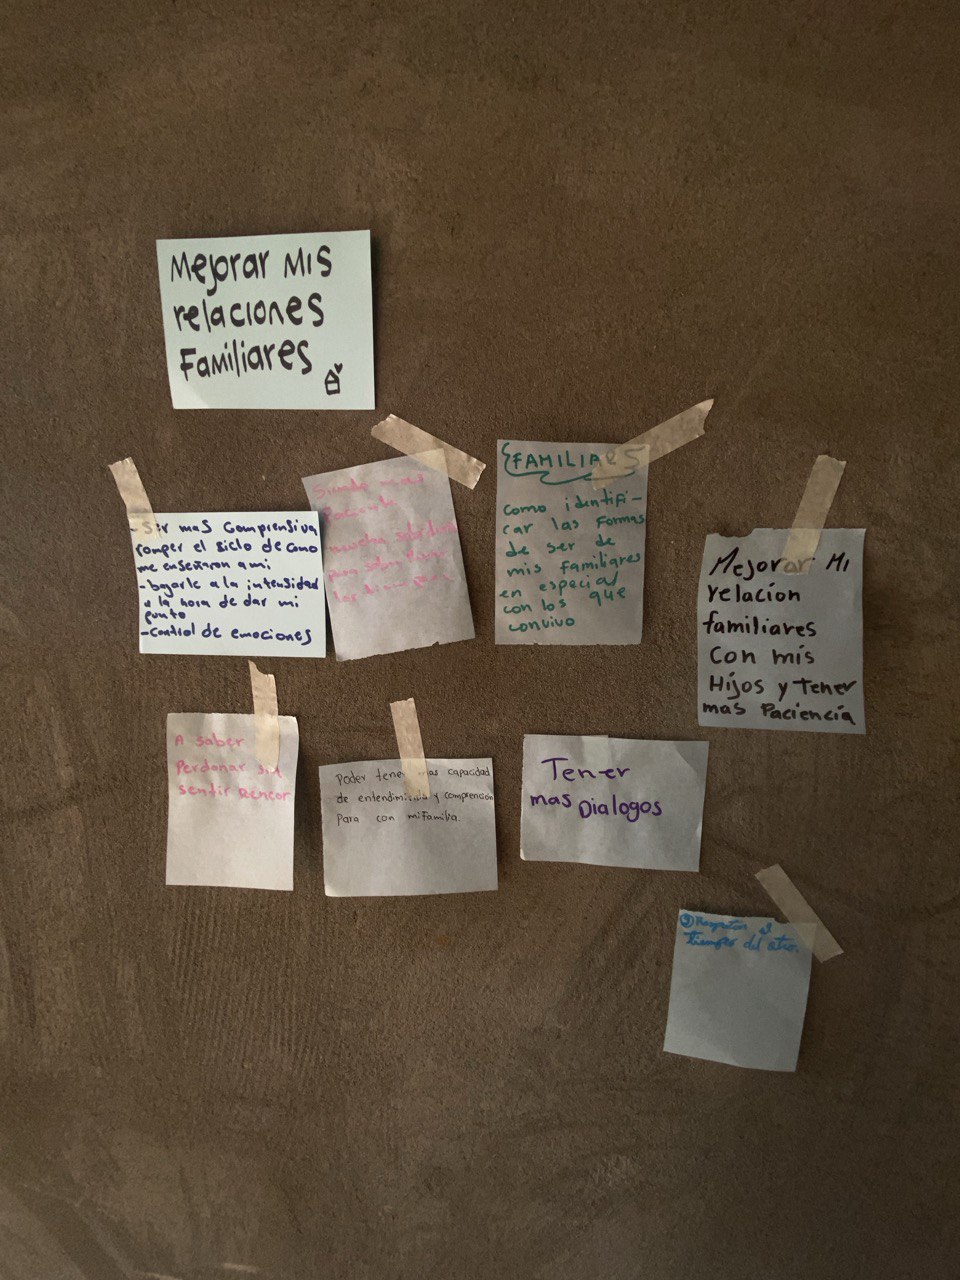 Mejorar Mis
relaciones
Familiares
- Ser mas Comprensiva
romper el siclo de como
me enseñaron a mi
- bajarle a la intensidad
a la hora de dar mi
punto
- Control de emociones
Siendo mas
Paciente
mucha sabiduria
para saber llevar
FAMILIARES
como identifi-
car las formas
de ser de
mis familiares
en especial
con los que
convivo
Mejorar Mi
relacion
familiares
Con mis
Hijos y Tener
mas Paciencia
A saber
Perdonar sin
sentir Rencor
Poder tener mas capacidad
de entendimiento y comprencion
Para con mi familia.
Tener
mas Dialogos
Respetar el
tiempo del otro.